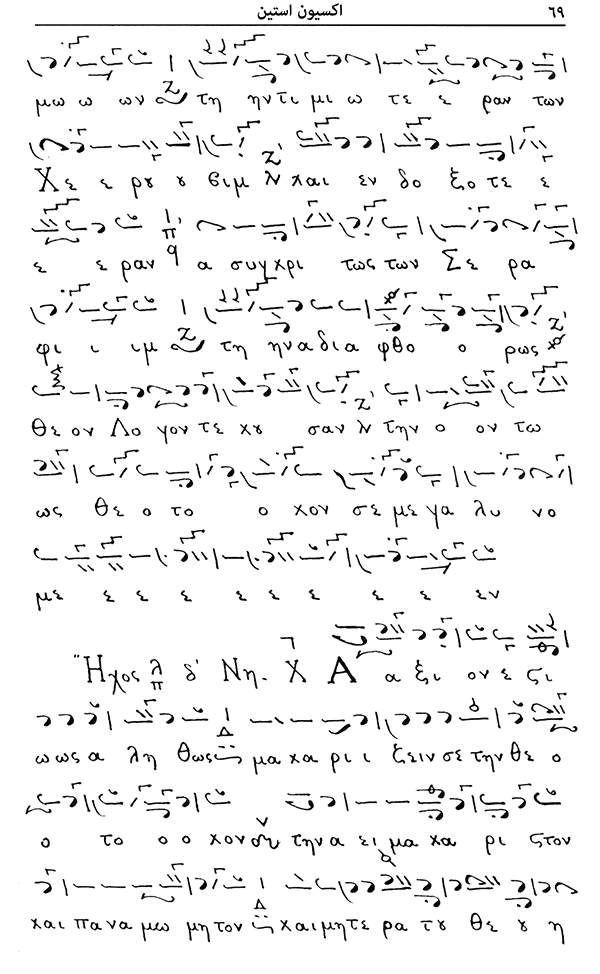 ٦٩ اكسيون استين
μω ω ων τη ην τι μι ω τε ε ραν των
Χε ε ρου ου βιμ και εν δο ξο τε ε
ε ε ραν α συγκρι τως των Σε ρα
φι ι ιμ τη ην α δια φθο ο ρως
θε ον Λο γον τε κου σαν την ο ον τω
ως θε ο το ο κον σε με γα λυ νο
με ε ε ε ε ε ε ε εν
Ἦχος λ π δ' Νη. Χ Α α ξι ον ε ςι
ω ως α λη θως μα κα ρι ι ζειν σε την θε ο
ο το ο ο κον την α ει μα κα ρι ςτον
και παναμω μη τον και μη τε ρα του θε ου η